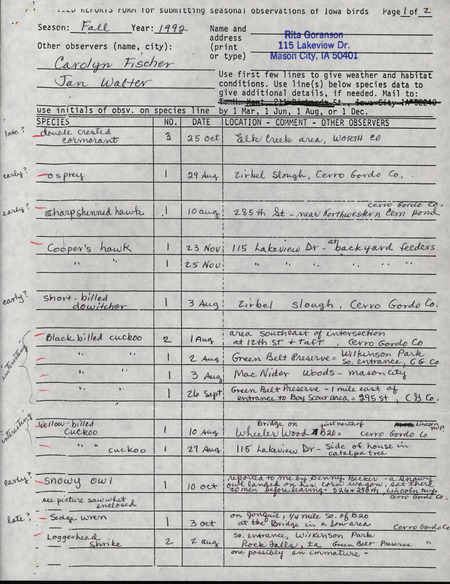 FIELD REPORTS FORM for submitting seasonal observations of Iowa birds Page 1 of 2
Season: Fall Year: 1992 Name and address (print or type)
Rita Goranson
115 Lakeview Dr.
Mason City, IA 50401
Other observers (name, city):
Carolyn Fischer
Jan Walter
Use first few lines to give weather and habitat
conditions. Use line(s) below species data to
give additional details, if needed. Mail to:
use initials of obsv. on species line by 1 Mar, 1 Jun, 1 Aug, or 1 Dec.
SPECIES NO. DATE LOCATION - COMMENT - OTHER OBSERVERS
late? double crested cormorant 3 25 Oct Elk Creek area, WORTH CO
early? osprey 1 29 Aug Zirbel Slough, Cerro Gordo Co.
early? Sharpshinned hawk 1 10 aug 285th St - near Northwestern Cem pond Cerro Gordo Co.
Cooper's hawk 1 23 Nov 115 Lakeview Dr - at backyard feeders
" " 1 25 Nov " " " "
early? Short-billed dowitcher 1 3 Aug Zirbel Slough, Cerro Gordo Co.
interesting Black billed cuckoo 2 1 Aug area southeast of intersection
at 12th St + Taft, Cerro Gordo Co
" " 1 2 Aug Green Belt Preserve - Wilkinson Park
So. entrance, C G Co
" " 1 3 Aug MacNider Woods - mason city
" " 1 26 Sept Green Belt Preserve - 1 mile east of
entrance to Boy Scout area - 295 st, C G Co.
interesting Yellow-billed Cuckoo 1 10 Aug Bridge on
Wheeler Wood B20 - Cerro Gordo Co. Lincoln twp.
" " cuckoo 1 27 Aug 115 Lakeview Dr - side of house in
catalpa tree
early? Snowy owl 1 10 oct reported to me by Denny Becker - a snowy
owl landed on his corn wagon, sat there
20 min before leaving - Lincoln twp
Cerro Gordo Co.
see picture saw what enclosed
late? Sedge wren 1 3 oct on Jonquil, 1/4 mile So. of B20
at the Bridge in a low area Cerro Gordo Co
Loggerhead Shrike 2 2 aug So. entrance, Wilkinson Park
Rock Falls, Ia Green Belt Preserve "
one possibly an immature -